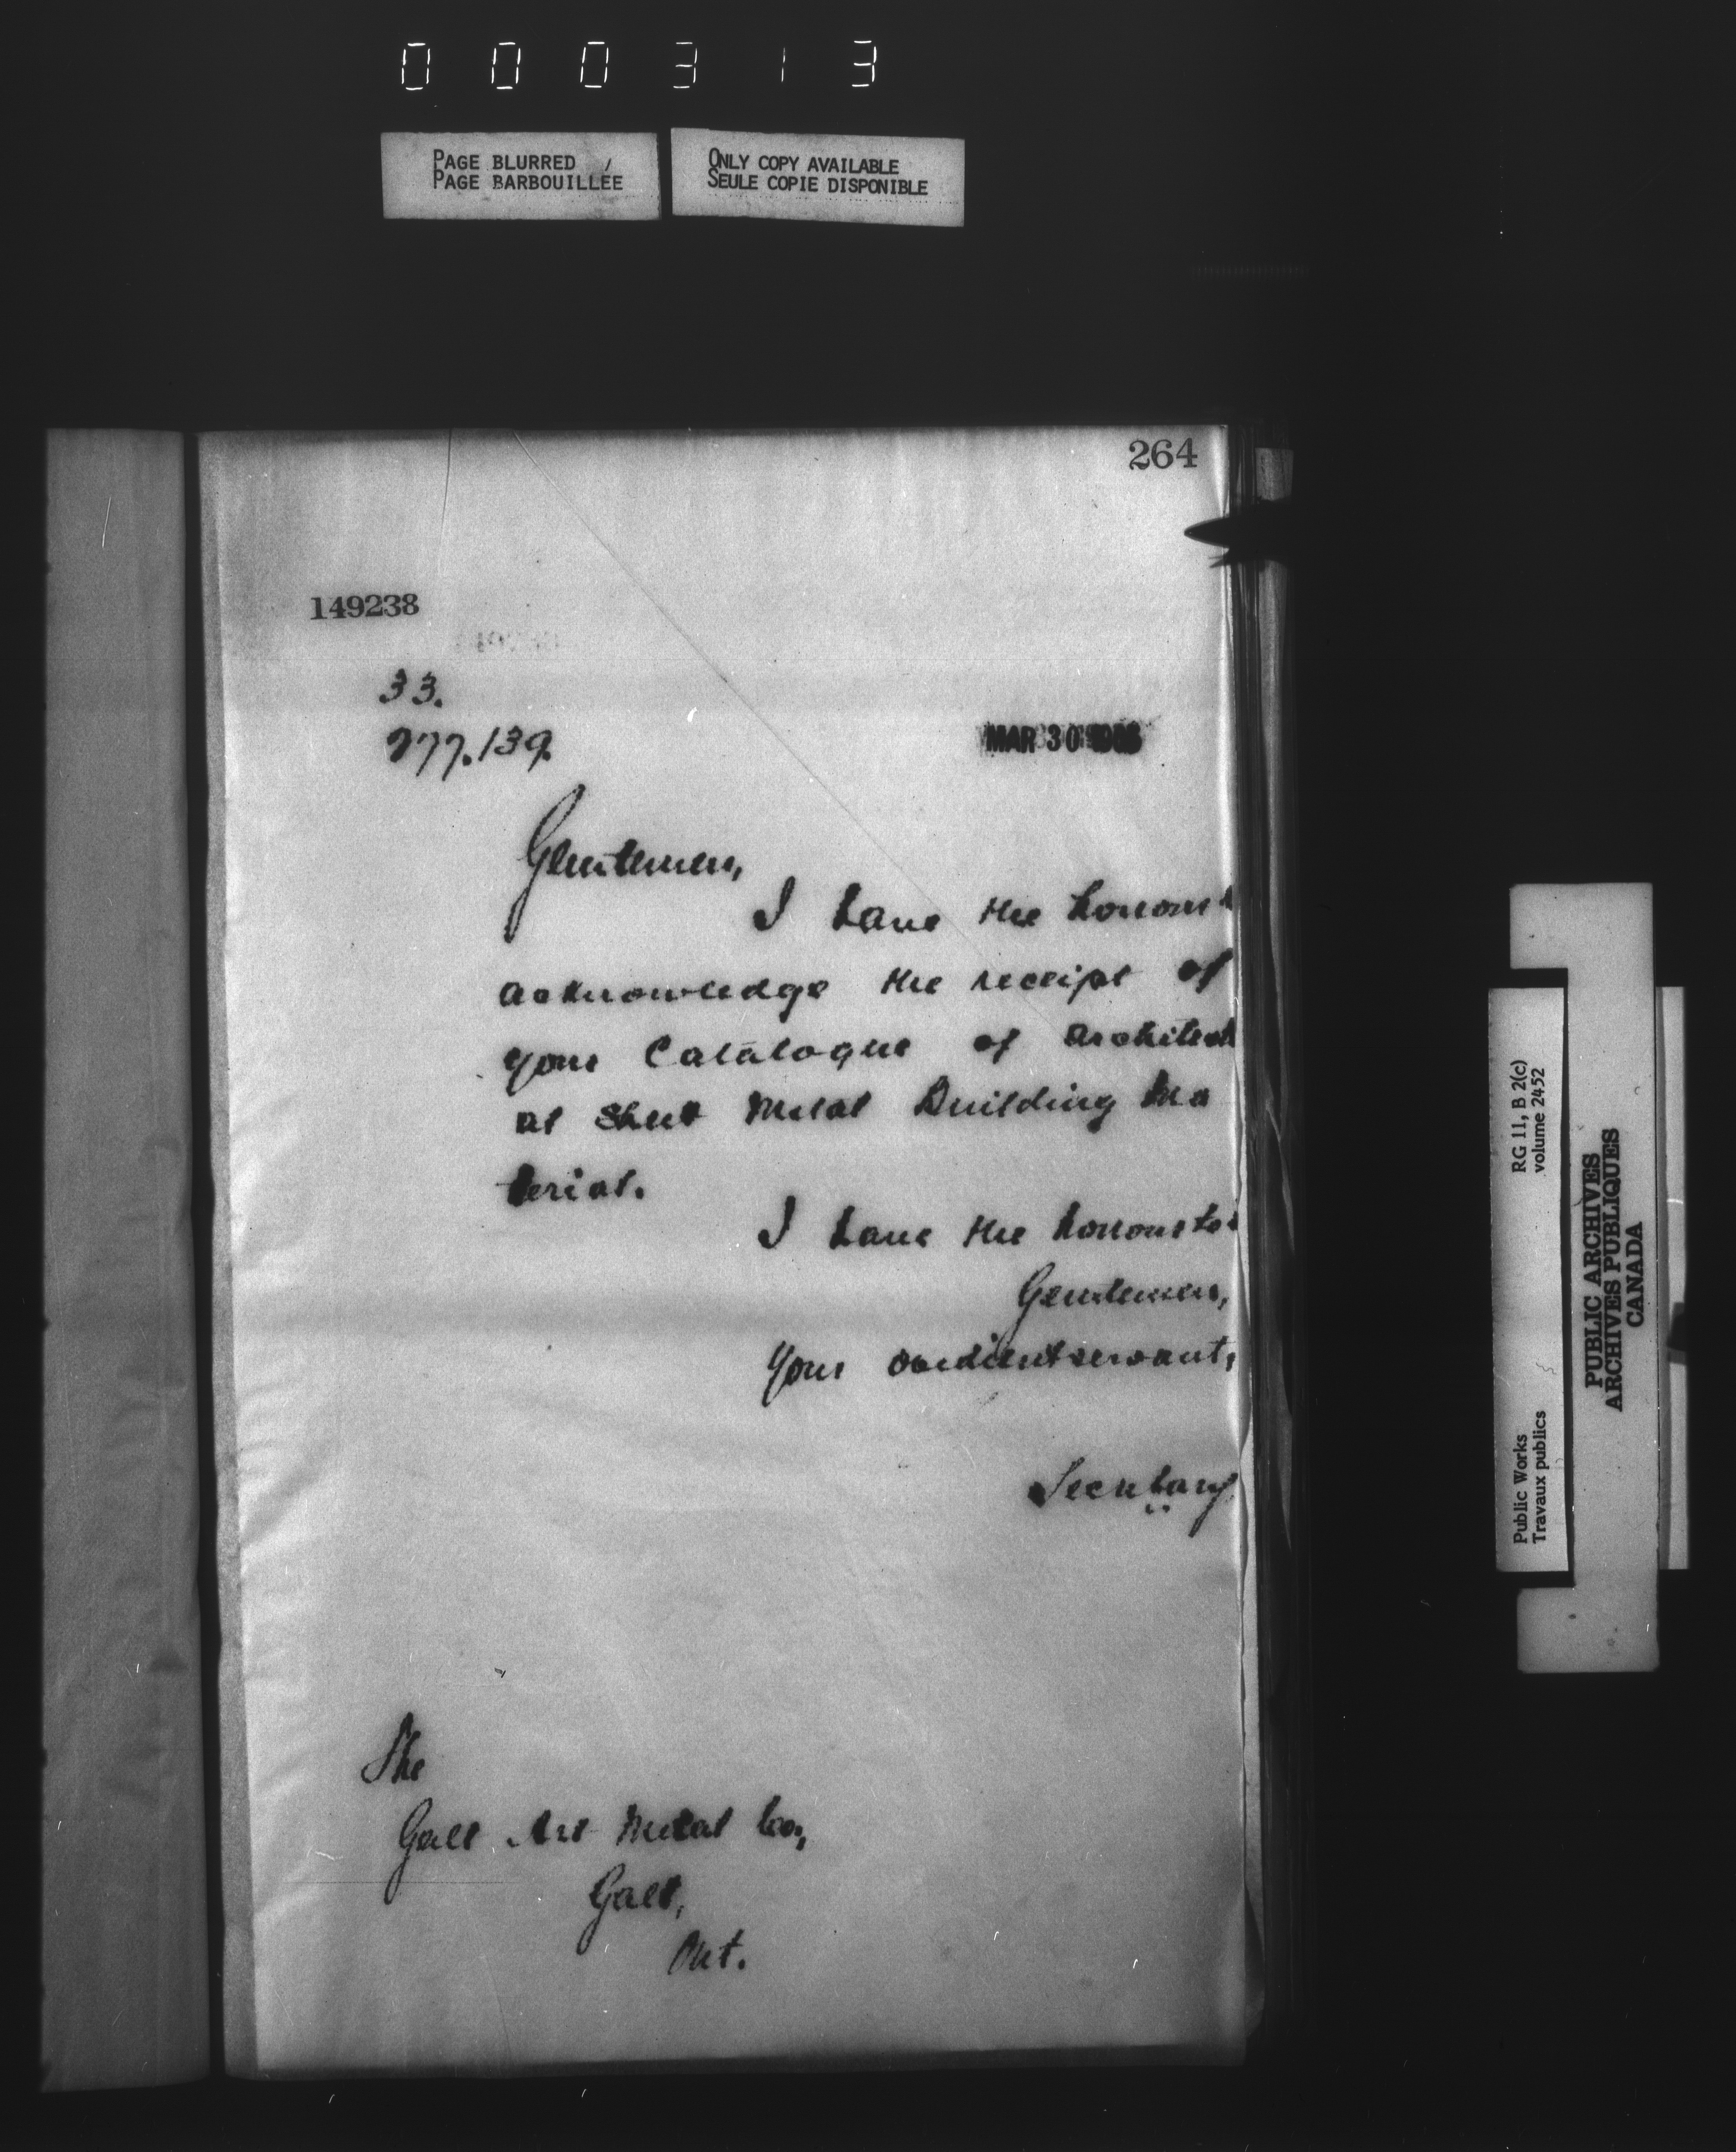 000313
PAGE BLURRED
PAGE BARBOUILLÉE
ONLY COPY AVAILABLE
SEULE COPIE DISPONIBLE
264
149238
33.
277.139.
MAR 30
Gentlemen,
I have the honour
acknowledge the receipt of
your Catalogue of Architect
al Sheet Metal Building Ma
terial.
I have the honour to
Gentlemen,
Your obedient servant,
Secretary
The
Galt Art Metal Co.,
Galt,
Ont.
RG 11, B 2(c)
volume 2452
Public Works
Travaux publics
PUBLIC ARCHIVES
ARCHIVES PUBLIQUES
CANADA